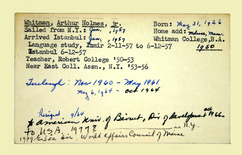 Whitman, Arthur Holmes, Jr. Born: May 31, 1926
Sailed from N.Y.: Jan, 1957 Home add: Maine
Arrived Istanbul: Jan, 1957 Whitman College, B.A.
Language study, Izmir 2-11-57 to 6-12-57 1950
Istanbul 6-12-57
Teacher, Robert College '50-53
Near East Coll. Assn., N.Y. '53-56
Furlough: Nov 1960 - May 1961
May 6, 1964 - Oct 1964
Resigned 9/64
American Univ of Beirut, Div of
to U.S.A. 1977? N.Y.
1979 World Affairs Council of Maine